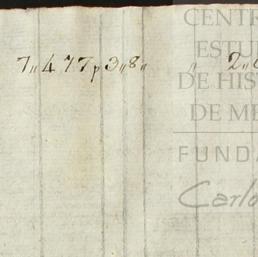 7,,477p3,,8,, ,, 2,,
CENTR
ESTU
DE HIS
DE ME
FUNDA
Carlo